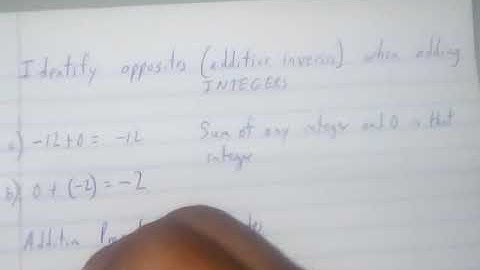 Identify opposites (additive inverses) when adding
INTEGERS
a) -12+0 = -12 Sum of any integer and 0 is that
integer
b) 0 + (-2) = -2
Addition